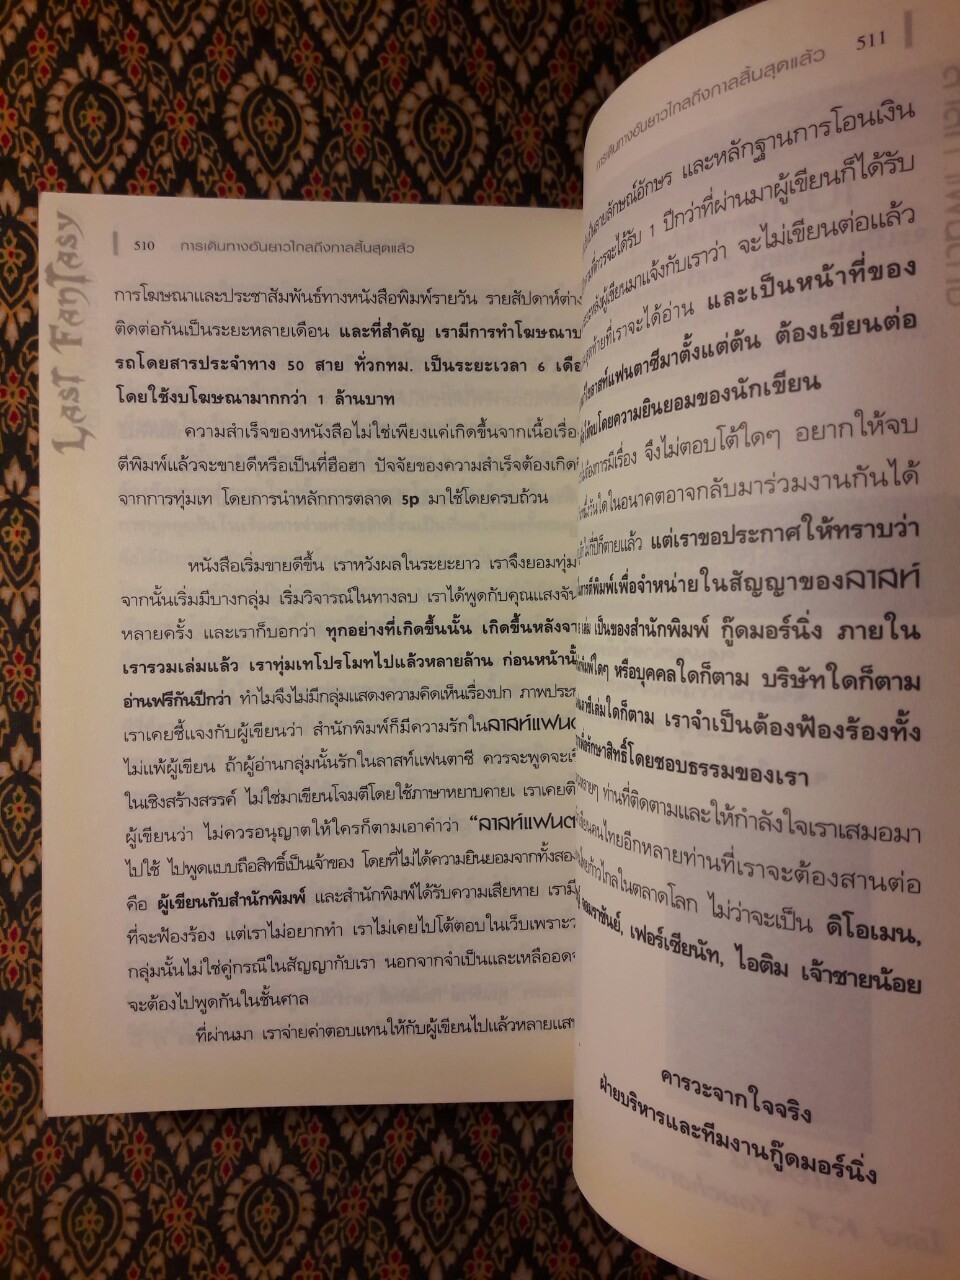 Last Fantasy
510 การเดินทางอันยาวไกลถึงกาลสิ้นสุดแล้ว
การโฆษณาและประชาสัมพันธ์ทางหนังสือพิมพ์รายวัน รายสัปดาห์ต่าง
ติดต่อกันเป็นระยะหลายเดือน และที่สำคัญ เรามีการทำโฆษณาบ
รถโดยสารประจำทาง 50 สาย ทั่วกทม. เป็นระยะเวลา 6 เดือ
โดยใช้งบโฆษณามากกว่า 1 ล้านบาท
ความสำเร็จของหนังสือไม่ใช่เพียงแค่เกิดขึ้นจากเนื้อเรื่อ
ตีพิมพ์แล้วจะขายดีหรือเป็นที่ฮือฮา ปัจจัยของความสำเร็จต้องเกิด
จากการทุ่มเท โดยการนำหลักการตลาด 5p มาใช้โดยครบถ้วน
หนังสือเริ่มขายดีขึ้น เราหวังผลในระยะยาว เราจึงยอมทุ่ม
จากนั้นเริ่มมีบางกลุ่ม เริ่มวิจารณ์ในทางลบ เราได้พูดกับคุณแสงจัน
หลายครั้ง และเราก็บอกว่า ทุกอย่างที่เกิดขึ้นนั้น เกิดขึ้นหลังจา
เรารวมเล่มแล้ว เราทุ่มเทโปรโมทไปแล้วหลายล้าน ก่อนหน้านั้
อ่านฟรีกันปีกว่า ทำไมจึงไม่มีกลุ่มแสดงความคิดเห็นเรื่องปก ภาพประ
เราเคยชี้แจงกับผู้เขียนว่า สำนักพิมพ์ก็มีความรักในลาสท์แฟนต
ไม่แพ้ผู้เขียน ถ้าผู้อ่านกลุ่มนั้นรักในลาสท์แฟนตาซี ควรจะพูดจะเ
ในเชิงสร้างสรรค์ ไม่ใช่มาเขียนโจมตีโดยใช้ภาษาหยาบคาย เราเคยติ
ผู้เขียนว่า ไม่ควรอนุญาตให้ใครก็ตามเอาคำว่า “ลาสท์แฟนต
ไปใช้ ไปพูดแบบถือสิทธิ์เป็นเจ้าของ โดยที่ไม่ได้ความยินยอมจากทั้งสอง
คือ ผู้เขียนกับสำนักพิมพ์ และสำนักพิมพ์ได้รับความเสียหาย เรามี
ที่จะฟ้องร้อง แต่เราไม่อยากทำ เราไม่เคยไปโต้ตอบในเว็บเพราะว
กลุ่มนั้นไม่ใช่คู่กรณีในสัญญากับเรา นอกจากจำเป็นและเหลืออดจ
จะต้องไปพูดกันในชั้นศาล
ที่ผ่านมา เราจ่ายค่าตอบแทนให้กับผู้เขียนไปแล้วหลายแส
การเดินทางอันยาวไกลถึงกาลสิ้นสุดแล้ว 511
เป็นลายลักษณ์อักษร และหลักฐานการโอนเงิน
ที่ควรจะได้รับ 1 ปีกว่าที่ผ่านมาผู้เขียนก็ได้รับ
หลังผู้เขียนมาแจ้งกับเราว่า จะไม่เขียนต่อแล้ว
สุดท้ายที่เราจะได้อ่าน และเป็นหน้าที่ของ
ลาสท์แฟนตาซีมาตั้งแต่ต้น ต้องเขียนต่อ
ให้จบโดยความยินยอมของนักเขียน
ต้องการมีเรื่อง จึงไม่ตอบโต้ใดๆ อยากให้จบ
วันใดในอนาคตอาจกลับมาร่วมงานกันได้
กี่ปีก็ตายแล้ว แต่เราขอประกาศให้ทราบว่า
พิมพ์เพื่อจำหน่ายในสัญญาของลาสท์
เล่ม เป็นของสำนักพิมพ์ กู๊ดมอร์นิ่ง ภายใน
พิมพ์ใดๆ หรือบุคคลใดก็ตาม บริษัทใดก็ตาม
เล่มใดก็ตาม เราจำเป็นต้องฟ้องร้องทั้ง
เพื่อรักษาสิทธิ์โดยชอบธรรมของเรา
หลายๆ ท่านที่ติดตามและให้กำลังใจเราเสมอมา
เขียนคนไทยอีกหลายท่านที่เราจะต้องสานต่อ
ก้าวไกลในตลาดโลก ไม่ว่าจะเป็น ดิโอเมน,
จอมราชันย์, เฟอร์เซียนัท, ไอติม เจ้าชายน้อย
คารวะจากใจจริง
ฝ่ายบริหารและทีมงานกู๊ดมอร์นิ่ง